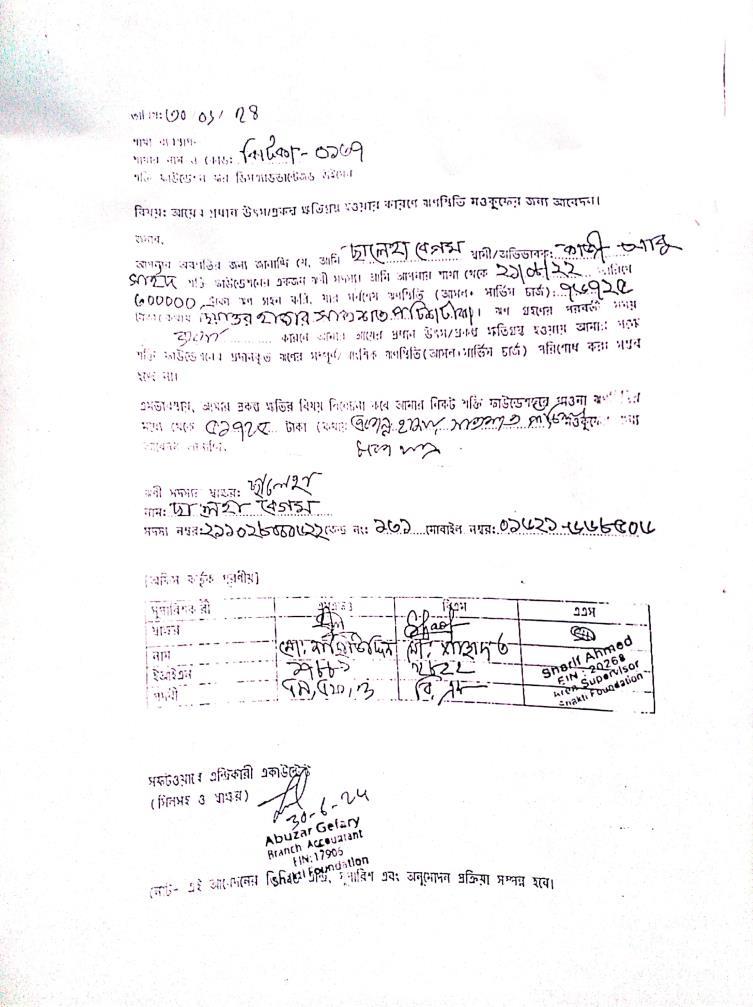 তারিখ: ৩০ ০১/ ২৪
শাখা ব্যবস্থাপক
শাখার নাম ও কোড: ঝিটকা - ০১৬৭
শক্তি ফাউন্ডেশন ফর ডিসএ্যাডভান্টেজড উইমেন
বিষয়: আয়ের প্রধান উৎস/প্রকল্প ক্ষতিগ্রস্থ হওয়ার কারণে ঋণস্থিতি মওকুফের জন্য আবেদন।
জনাব,
আপনার অবগতির জন্য জানাচ্ছি যে, আমি ছালেহা বেগম স্বামী/অভিভাবক: কাজী আবু
সাইদ শক্তি ফাউন্ডেশনের একজন ঋণী সদস্য। আমি আপনার শাখা থেকে ২১/০৮/২২ তারিখে
৩০০০০০ টাকা ঋণ গ্রহন করি, যার সর্বশেষ ঋণস্থিতি (আসল+ সার্ভিস চার্জ) ৭৬৭২৫
টাকা কথায় ছিয়াত্তর হাজার সাতশত পঁচিশ টাকা। ঋণ গ্রহণের পরবর্তী সময়
কারণে আমার আয়ের প্রধান উৎস/প্রকল্প ক্ষতিগ্রস্থ হওয়ায় আমার পক্ষে
শক্তি ফাউন্ডেশনের প্রদানকৃত ঋণের সম্পূর্ণ/আংশিক ঋণস্থিতি(আসল+সার্ভিস চার্জ) পরিশোধ করা সম্ভব
হচ্ছে না।
এমতাবস্থায়, আমার প্রকল্প ক্ষতির বিষয় বিবেচনা করে আমার নিকট শক্তি ফাউন্ডেশনের পাওনা ঋণস্থিতির
মধ্য থেকে ৫১৭২৫ টাকা (কথায় একান্ন হাজার সাতশত পঁচিশ মওকুফের জন্য
আবেদন জানাচ্ছি।
ঋণী সদস্যের স্বাক্ষর: ছালেহা
নাম: ছালেহা বেগম
সদস্য নম্বর: কেন্দ্র নং: ১৩১ মোবাইল নম্বর:
[অফিস কর্তৃক পূরণীয়]
সুপারিশকারী বিএম এএস
স্বাক্ষর
নাম মো: মহিউদ্দিন মো: সাহাদত
ইআইএন
পদবী বি, এম
Sharif Ahmed
EIN: 20268
Area Supervisor
Shakti Foundation
সফটওয়্যারে এন্ট্রিকারী একাউন্টেন্ট
(সিলসহ ও স্বাক্ষর)
30-6-24
Abuzar Gefary
Branch Accountant
EIN:17906
Shakti Foundation
নোট- এই আবেদনের ভিত্তিতে এন্ট্রি, সুপারিশ এবং অনুমোদন প্রক্রিয়া সম্পন্ন হবে।